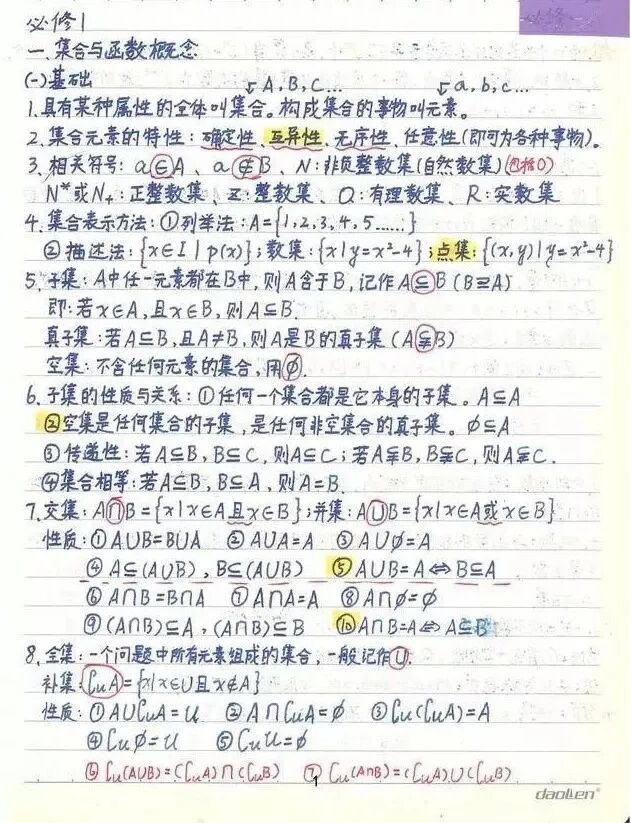 必修1
必修一
一、集合与函数概念
(一)基础 ↙A,B,C… ↙a,b,c…
1.具有某种属性的全体叫集合。构成集合的事物叫元素。
2.集合元素的特性：确定性、互异性、无序性、任意性(即可为各种事物)。
3.相关符号：a∈A、a∉B、N：非负整数集(自然数集)(包括0)
N*或N₊：正整数集、Z：整数集、Q：有理数集、R：实数集
4.集合表示方法：①列举法：A={1,2,3,4,5……}
②描述法：{x∈I|p(x)}；数集：{x|y=x²-4}；点集：{(x,y)|y=x²-4}
5.子集：A中任一元素都在B中，则A含于B，记作A⊆B(B⊇A)
即：若x∈A，且x∈B，则A⊆B.
真子集：若A⊆B，且A≠B，则A是B的真子集(A⫋B)
空集：不含任何元素的集合，用∅.
6.子集的性质与关系：①任何一个集合都是它本身的子集。A⊆A
②空集是任何集合的子集，是任何非空集合的真子集。∅⊆A
③传递性：若A⊆B,B⊆C,则A⊆C；若A⫋B,B⫋C,则A⫋C.
④集合相等：若A⊆B,B⊆A,则A=B.
7.交集：A∩B={x|x∈A且x∈B}；并集：A∪B={x|x∈A或x∈B}
性质：①A∪B=B∪A ②A∪A=A ③A∪∅=A
④A⊆(A∪B),B⊆(A∪B) ⑤A∪B=A⇔B⊆A
⑥A∩B=B∩A ⑦A∩A=A ⑧A∩∅=∅
⑨(A∩B)⊆A,(A∩B)⊆B ⑩A∩B=A⇔A⊆B
8.全集：一个问题中所有元素组成的集合，一般记作U.
补集：∁uA={x|x∈U且x∉A}
性质：①A∪∁uA=U ②A∩∁uA=∅ ③∁u(∁uA)=A
④∁u∅=U ⑤∁uU=∅
⑥∁u(A∪B)=(∁uA)∩(∁uB) ⑦∁u(A∩B)=(∁uA)∪(∁uB)
1
daolen®